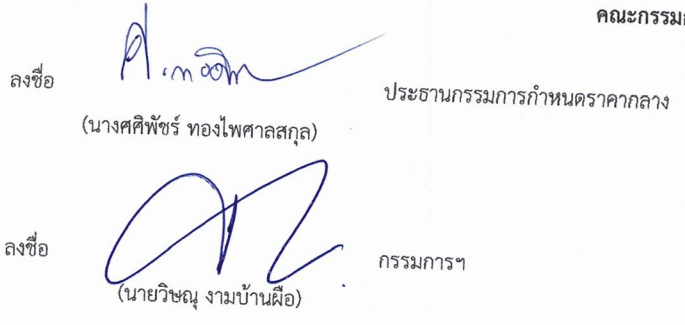 คณะกรรม
ลงชื่อ ประธานกรรมการกำหนดราคากลาง
(นางศศิพัชร์ ทองไพศาลสกุล)
ลงชื่อ กรรมการฯ
(นายวิษณุ งามบ้านผือ)